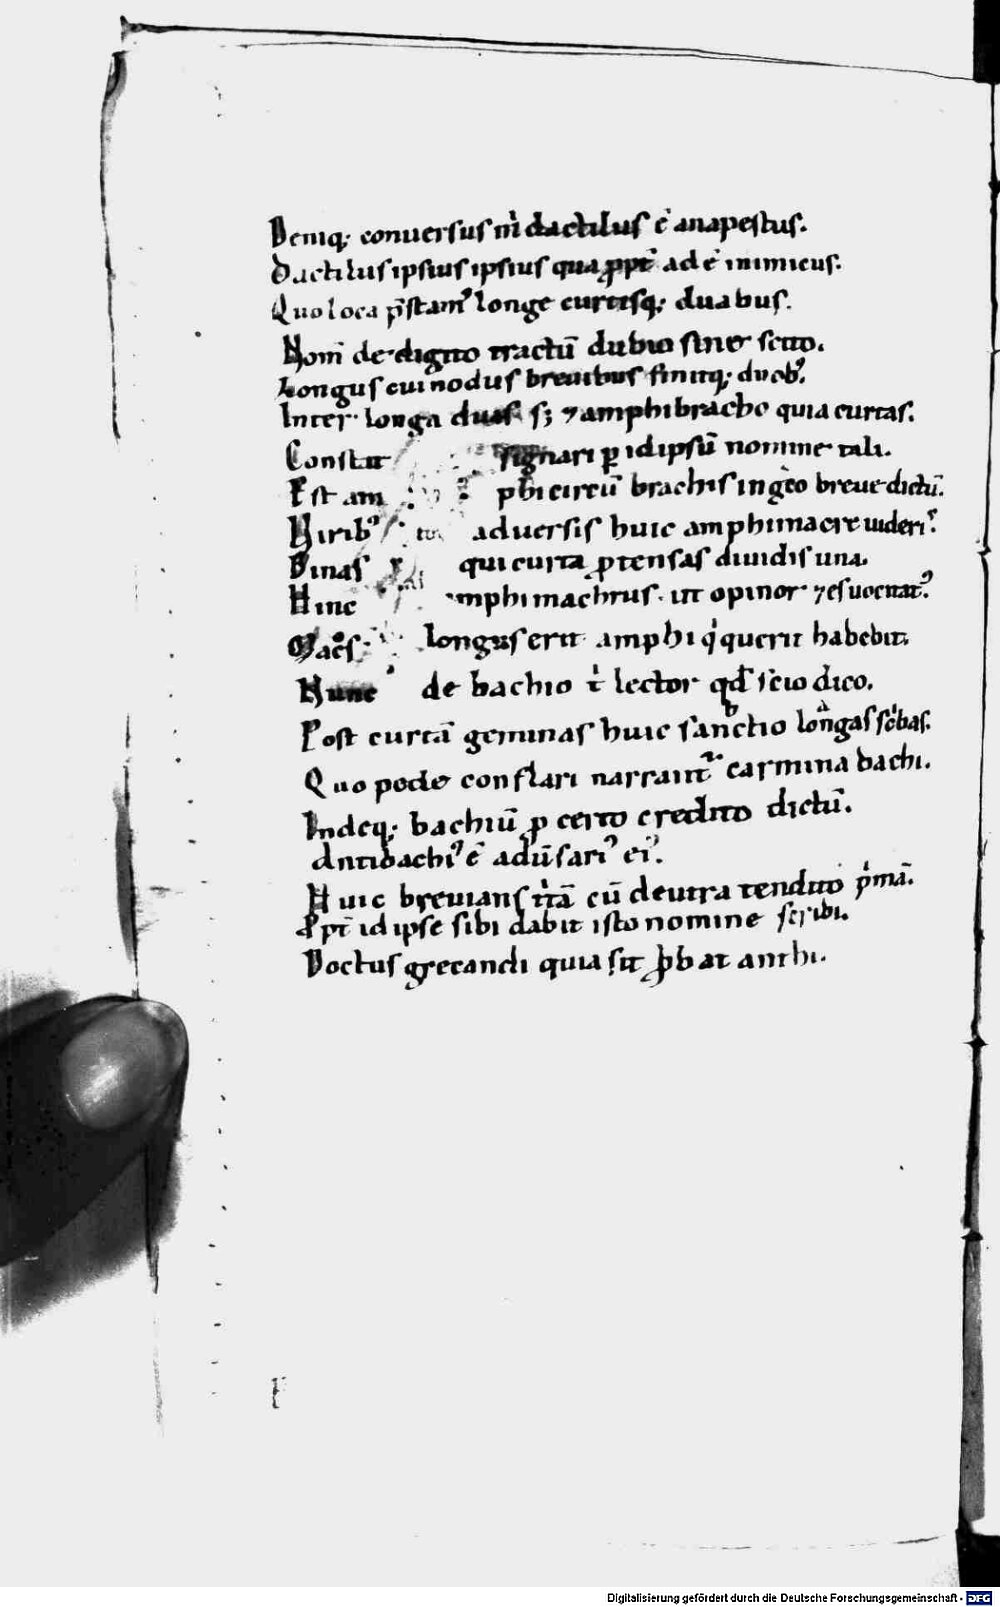 Deniq; conuersus m̄ dactilus ē anapestus.
Dactilus ipsius ipsius qua ꝓpt̄ ad ē inimicus.
Quo loca p̄stam᾽ longe curtisq; duabus.
Nom̄ de digito tractū dubio sine scito.
Longus cui nodus breuibus finitq; duob᾽.
Inter longa duas s; ⁊ amphibracho quia curtas.
Constit signari ꝑ id ipsū nomine tali.
Est am phi circū brachis in greco breue dictū.
Virib᾽ aduersis huic amphimacre uideri᾽.
Binas qui curta ꝓtensas diuidis una.
Hinc mphimachrus ut opinor ⁊ es uocitat᾽.
longus erit amphi q̇ querit habebit.
Nunc de bachio t̄ lector qd̄ scio dico.
Post curtā geminas huic sancbtio longas scͥbas.
Quo pede conflari narrant᾽ carmina bachi.
Indeq; bachiū ꝑ certo credito dictū.
Antibachi᾽ ē aduſ̄ari᾽ ei᾽.
Huic breuians t̄ciā cū deutra tendito p̄mā.
Ꝓpt̄ id ipse sibi dabit isto nomine scribi.
Doctus grecandi quia sit ꝓbat anthi.
Digitalisierung gefördert durch die Deutsche Forschungsgemeinschaft - DFG